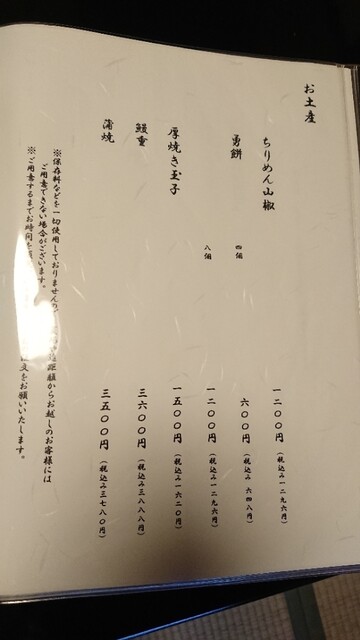 お土産
ちりめん山椒 一二〇〇円（税込み一二九六円）
勇餅 四個 六〇〇円（税込み 六四八円）
八個 一二〇〇円（税込み一二九六円）
厚焼き玉子 一五〇〇円（税込み一六二〇円）
鰻重 三六〇〇円（税込み三八八八円）
蒲焼 三五〇〇円（税込み三七八〇円）
※保存料などを一切使用しておりません 距離からお越しのお客様には
ご用意できない場合がございます。
※ご用意するまでお時間を 注文をお願いいたします。